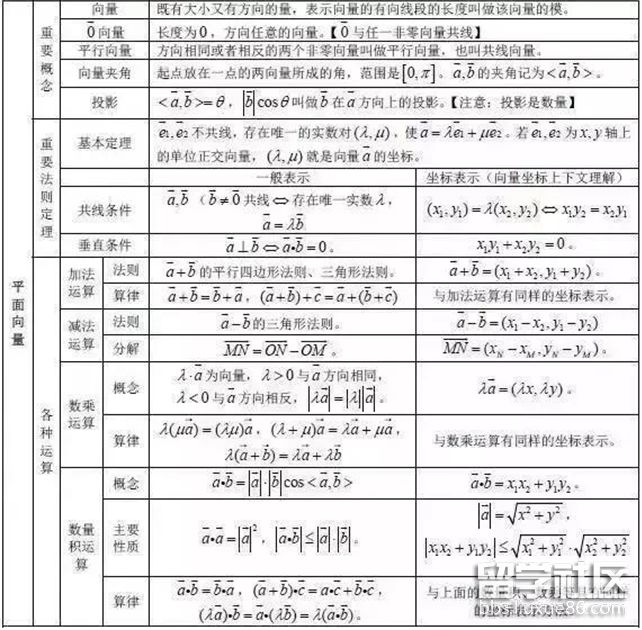 平面向量
重要概念
向量 既有大小又有方向的量，表示向量的有向线段的长度叫做该向量的模。
0⃗向量 长度为0，方向任意的向量。【0⃗与任一非零向量共线】
平行向量 方向相同或者相反的两个非零向量叫做平行向量，也叫共线向量。
向量夹角 起点放在一点的两向量所成的角，范围是[0,π]。a⃗,b⃗的夹角记为<a⃗,b⃗>。
投影 <a⃗,b⃗>=θ，|b⃗|cosθ叫做b⃗在a⃗方向上的投影。【注意：投影是数量】
重要法则定理
基本定理 e⃗₁,e⃗₂不共线，存在唯一的实数对(λ,μ)，使a⃗=λe⃗₁+μe⃗₂。若e⃗₁,e⃗₂为x,y轴上
的单位正交向量，(λ,μ)就是向量a⃗的坐标。
一般表示 坐标表示（向量坐标上下文理解）
共线条件 a⃗,b⃗（b⃗≠0⃗共线⇔存在唯一实数λ，
a⃗=λb⃗ (x₁,y₁)=λ(x₂,y₂)⇔x₁y₂=x₂y₁
垂直条件 a⃗⊥b⃗⇔a⃗•b⃗=0。 x₁y₁+x₂y₂=0。
各种运算
加法运算 法则 a⃗+b⃗的平行四边形法则、三角形法则。 a⃗+b⃗=(x₁+x₂,y₁+y₂)。
算律 a⃗+b⃗=b⃗+a⃗，(a⃗+b⃗)+c⃗=a⃗+(b⃗+c⃗) 与加法运算有同样的坐标表示。
减法运算 法则 a⃗−b⃗的三角形法则。 a⃗−b⃗=(x₁−x₂,y₁−y₂)
分解 MN⃗=ON⃗−OM⃗。 MN⃗=(x_N−x_M,y_N−y_M)。
数乘运算 概念 λ·a⃗为向量，λ>0与a⃗方向相同，
λ<0与a⃗方向相反，|λa⃗|=|λ||a⃗|。 λa⃗=(λx,λy)。
算律 λ(μa⃗)=(λμ)a⃗，(λ+μ)a⃗=λa⃗+μa⃗，
λ(a⃗+b⃗)=λa⃗+λb⃗ 与数乘运算有同样的坐标表示。
数量积运算 概念 a⃗•b⃗=|a⃗|·|b⃗|cos<a⃗,b⃗> a⃗•b⃗=x₁x₂+y₁y₂。
主要性质 a⃗•a⃗=|a⃗|²，|a⃗•b⃗|≤|a⃗|·|b⃗|。 |a⃗|=√(x²+y²)，
|x₁x₂+y₁y₂|≤√(x₁²+y₁²)·√(x₂²+y₂²)
算律 a⃗•b⃗=b⃗•a⃗，(a⃗+b⃗)•c⃗=a⃗•c⃗+b⃗•c⃗，
(λa⃗)•b⃗=a⃗•(λb⃗)=λ(a⃗•b⃗)。 与上面的
的坐标表示方法。
留学社区
bbs.liuxue86.com